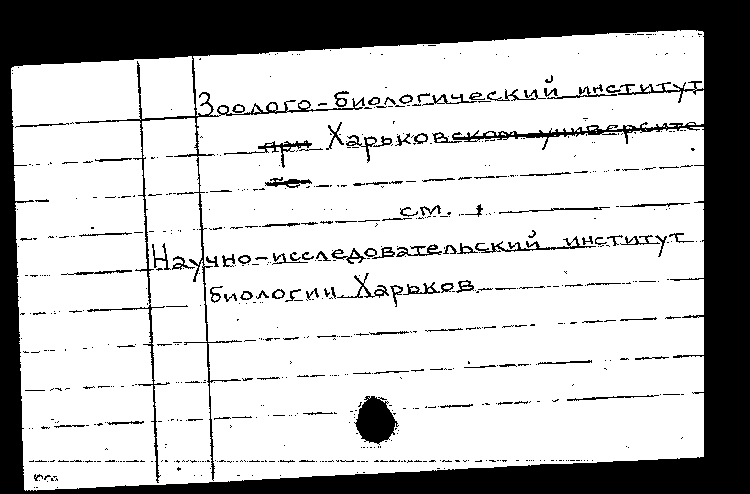 Зоолого-биологический институт
при Харьковском университе-
те
см.
Научно-исследовательский институт
биологии Харьков